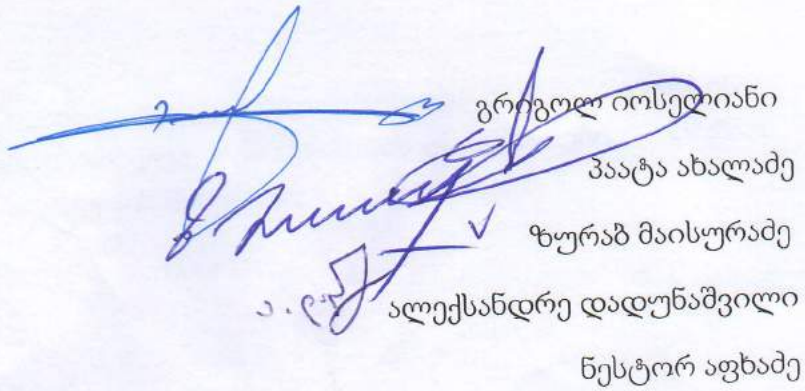 გრიგოლ იოსელიანი
პაატა ახალაძე
ზურაბ მაისურაძე
ალექსანდრე დადუნაშვილი
ნესტორ აფხაძე